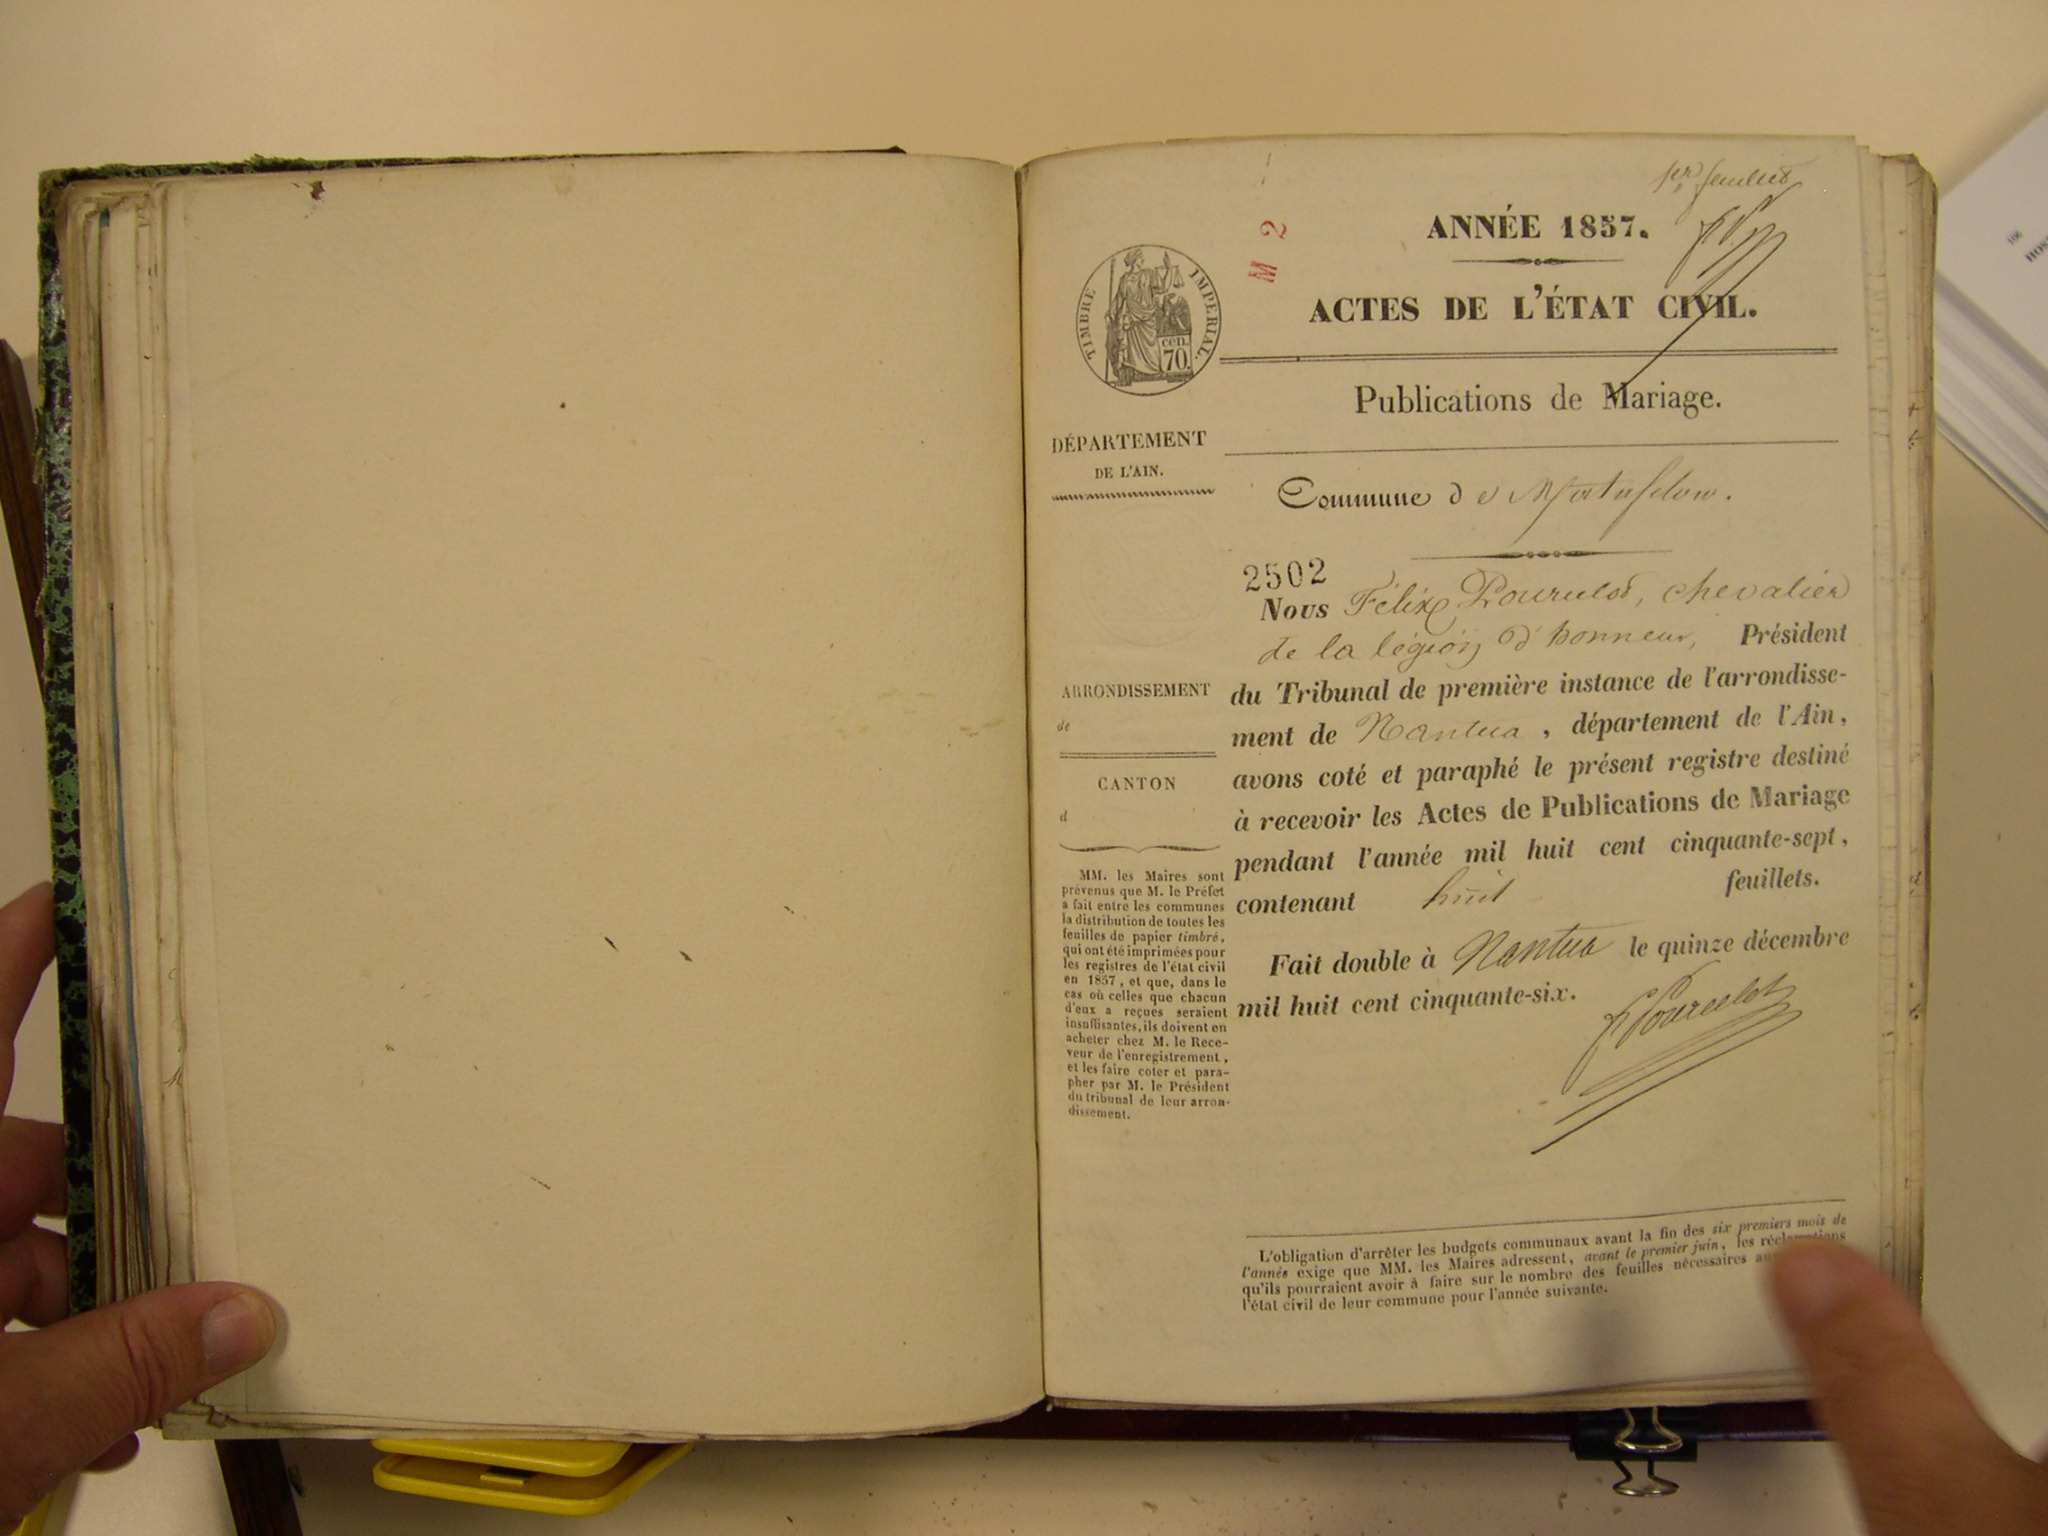 1er feuillet
M 2
ANNÉE 1857.
ACTES DE L'ÉTAT CIVIL.
TIMBRE IMPERIAL.
cen.
70.
Publications de Mariage.
DÉPARTEMENT
DE L'AIN.
Commune de Matafelon.
2502
Nous Félix Pourcelot, chevalier
de la légion d'honneur, Président
du Tribunal de première instance de l'arrondisse-
ment de Nantua, département de l'Ain,
avons coté et paraphé le présent registre destiné
à recevoir les Actes de Publications de Mariage
pendant l'année mil huit cent cinquante-sept,
contenant huit feuillets.
Fait double à Nantua le quinze décembre
mil huit cent cinquante-six.
Pourcelot
ARRONDISSEMENT
de
CANTON
d
MM. les Maires sont
prévenus que M. le Préfet
a fait entre les communes
la distribution de toutes les
feuilles de papier timbré,
qui ont été imprimées pour
les registres de l'état civil
en 1857, et que, dans le
cas où celles que chacun
d'eux a reçues seraient
insuffisantes, ils doivent en
acheter chez M. le Rece-
veur de l'enregistrement,
et les faire coter et para-
pher par M. le Président
du tribunal de leur arron-
dissement.
L'obligation d'arrêter les budgets communaux avant la fin des six premiers mois de
l'année exige que MM. les Maires adressent, avant le premier juin, les réclamations
qu'ils pourraient avoir à faire sur le nombre des feuilles nécessaires
l'état civil de leur commune pour l'année suivante.